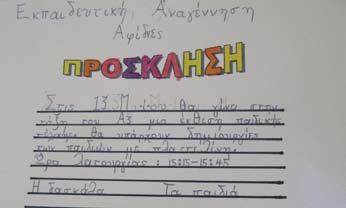 Εκπαιδευτική Αναγέννηση
Αφίδνες
ΠΡΟΣΚΛΗΣΗ
Στις 13 θα γίνει στην
τάξη του Α3 μια έκθεση παιδικής
τέχνης θα υπάρχουν δημιουργίες
των παιδιών με πλαστελίνη.
Ώρα λειτουργίας: 15:15-15:45
Η δασκάλα Τα παιδιά